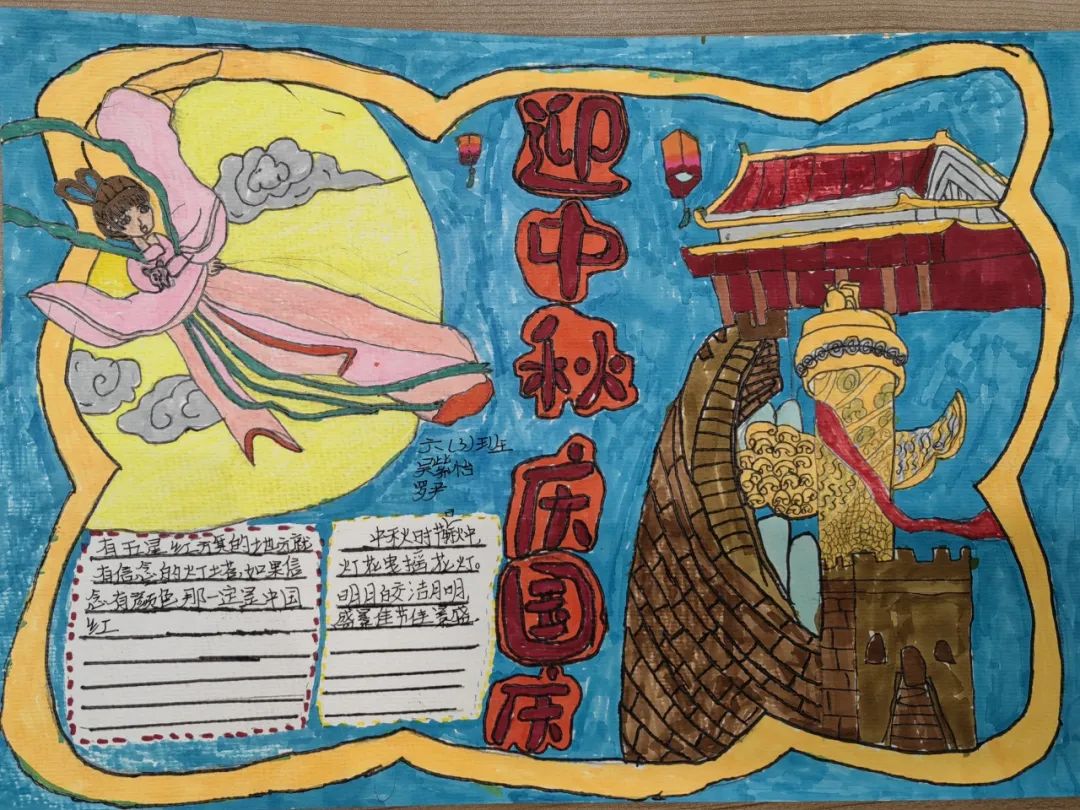 迎中秋 庆国庆
六(3)班
吴紫怡
罗尹
有五星红旗的地方就
有信念的灯塔,如果信
念有颜色那一定是中国
红
中秋时节
灯花摇花灯。
明月皎洁月明
盛景佳节佳景盛.